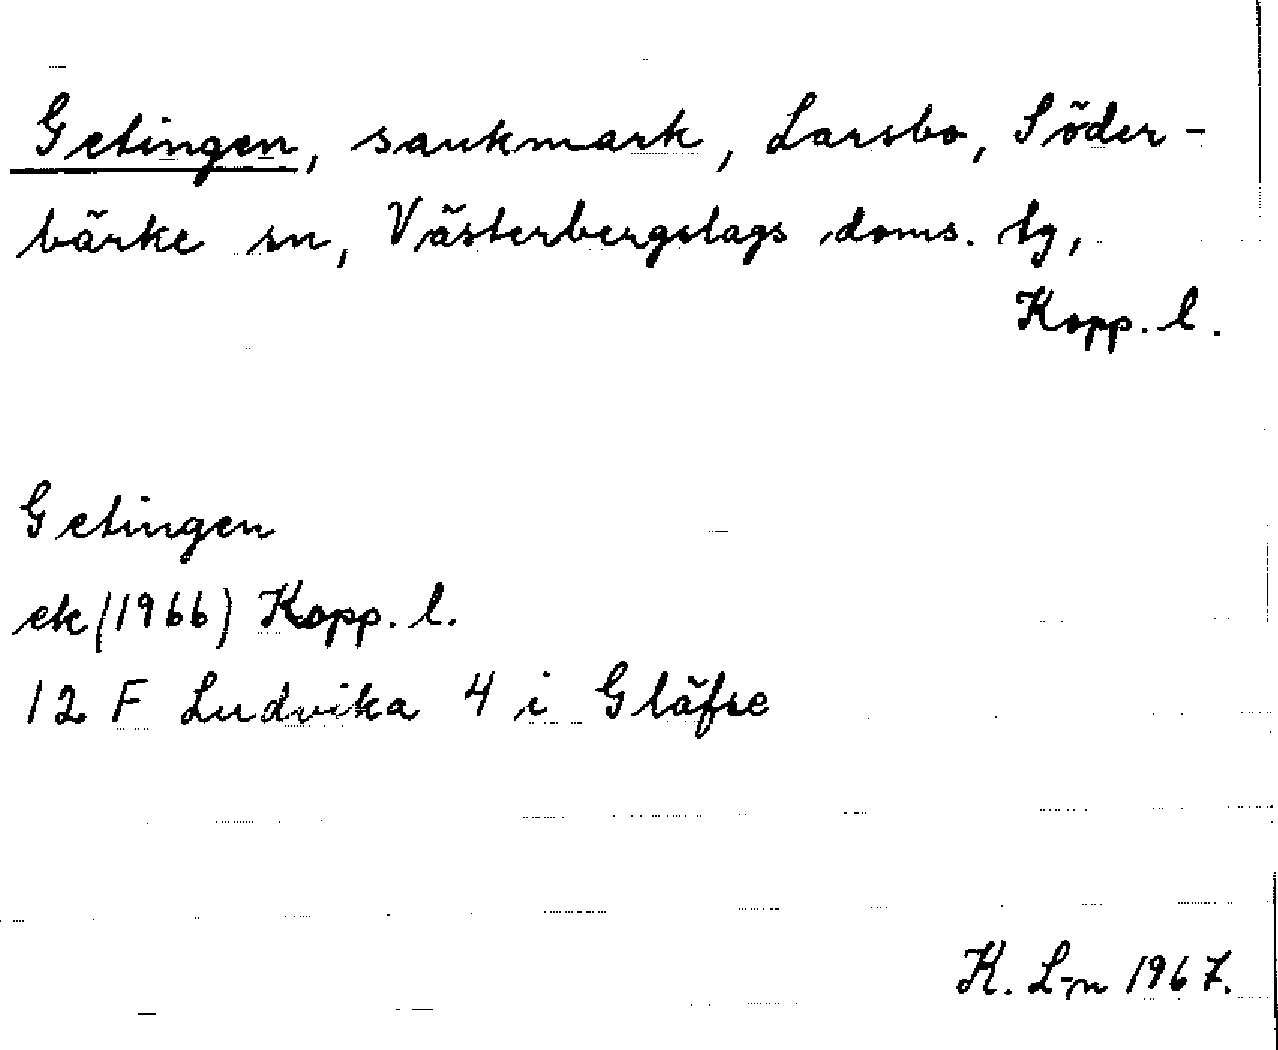 Getingen, sankmark, Larsbo, Söder-
bärke sn, Västerbergslags doms. lg,
Kopp. l.
Getingen
ek (1966) Kopp. l.
12 F Ludvika 4 i Gläfse
K. L-n 1967.